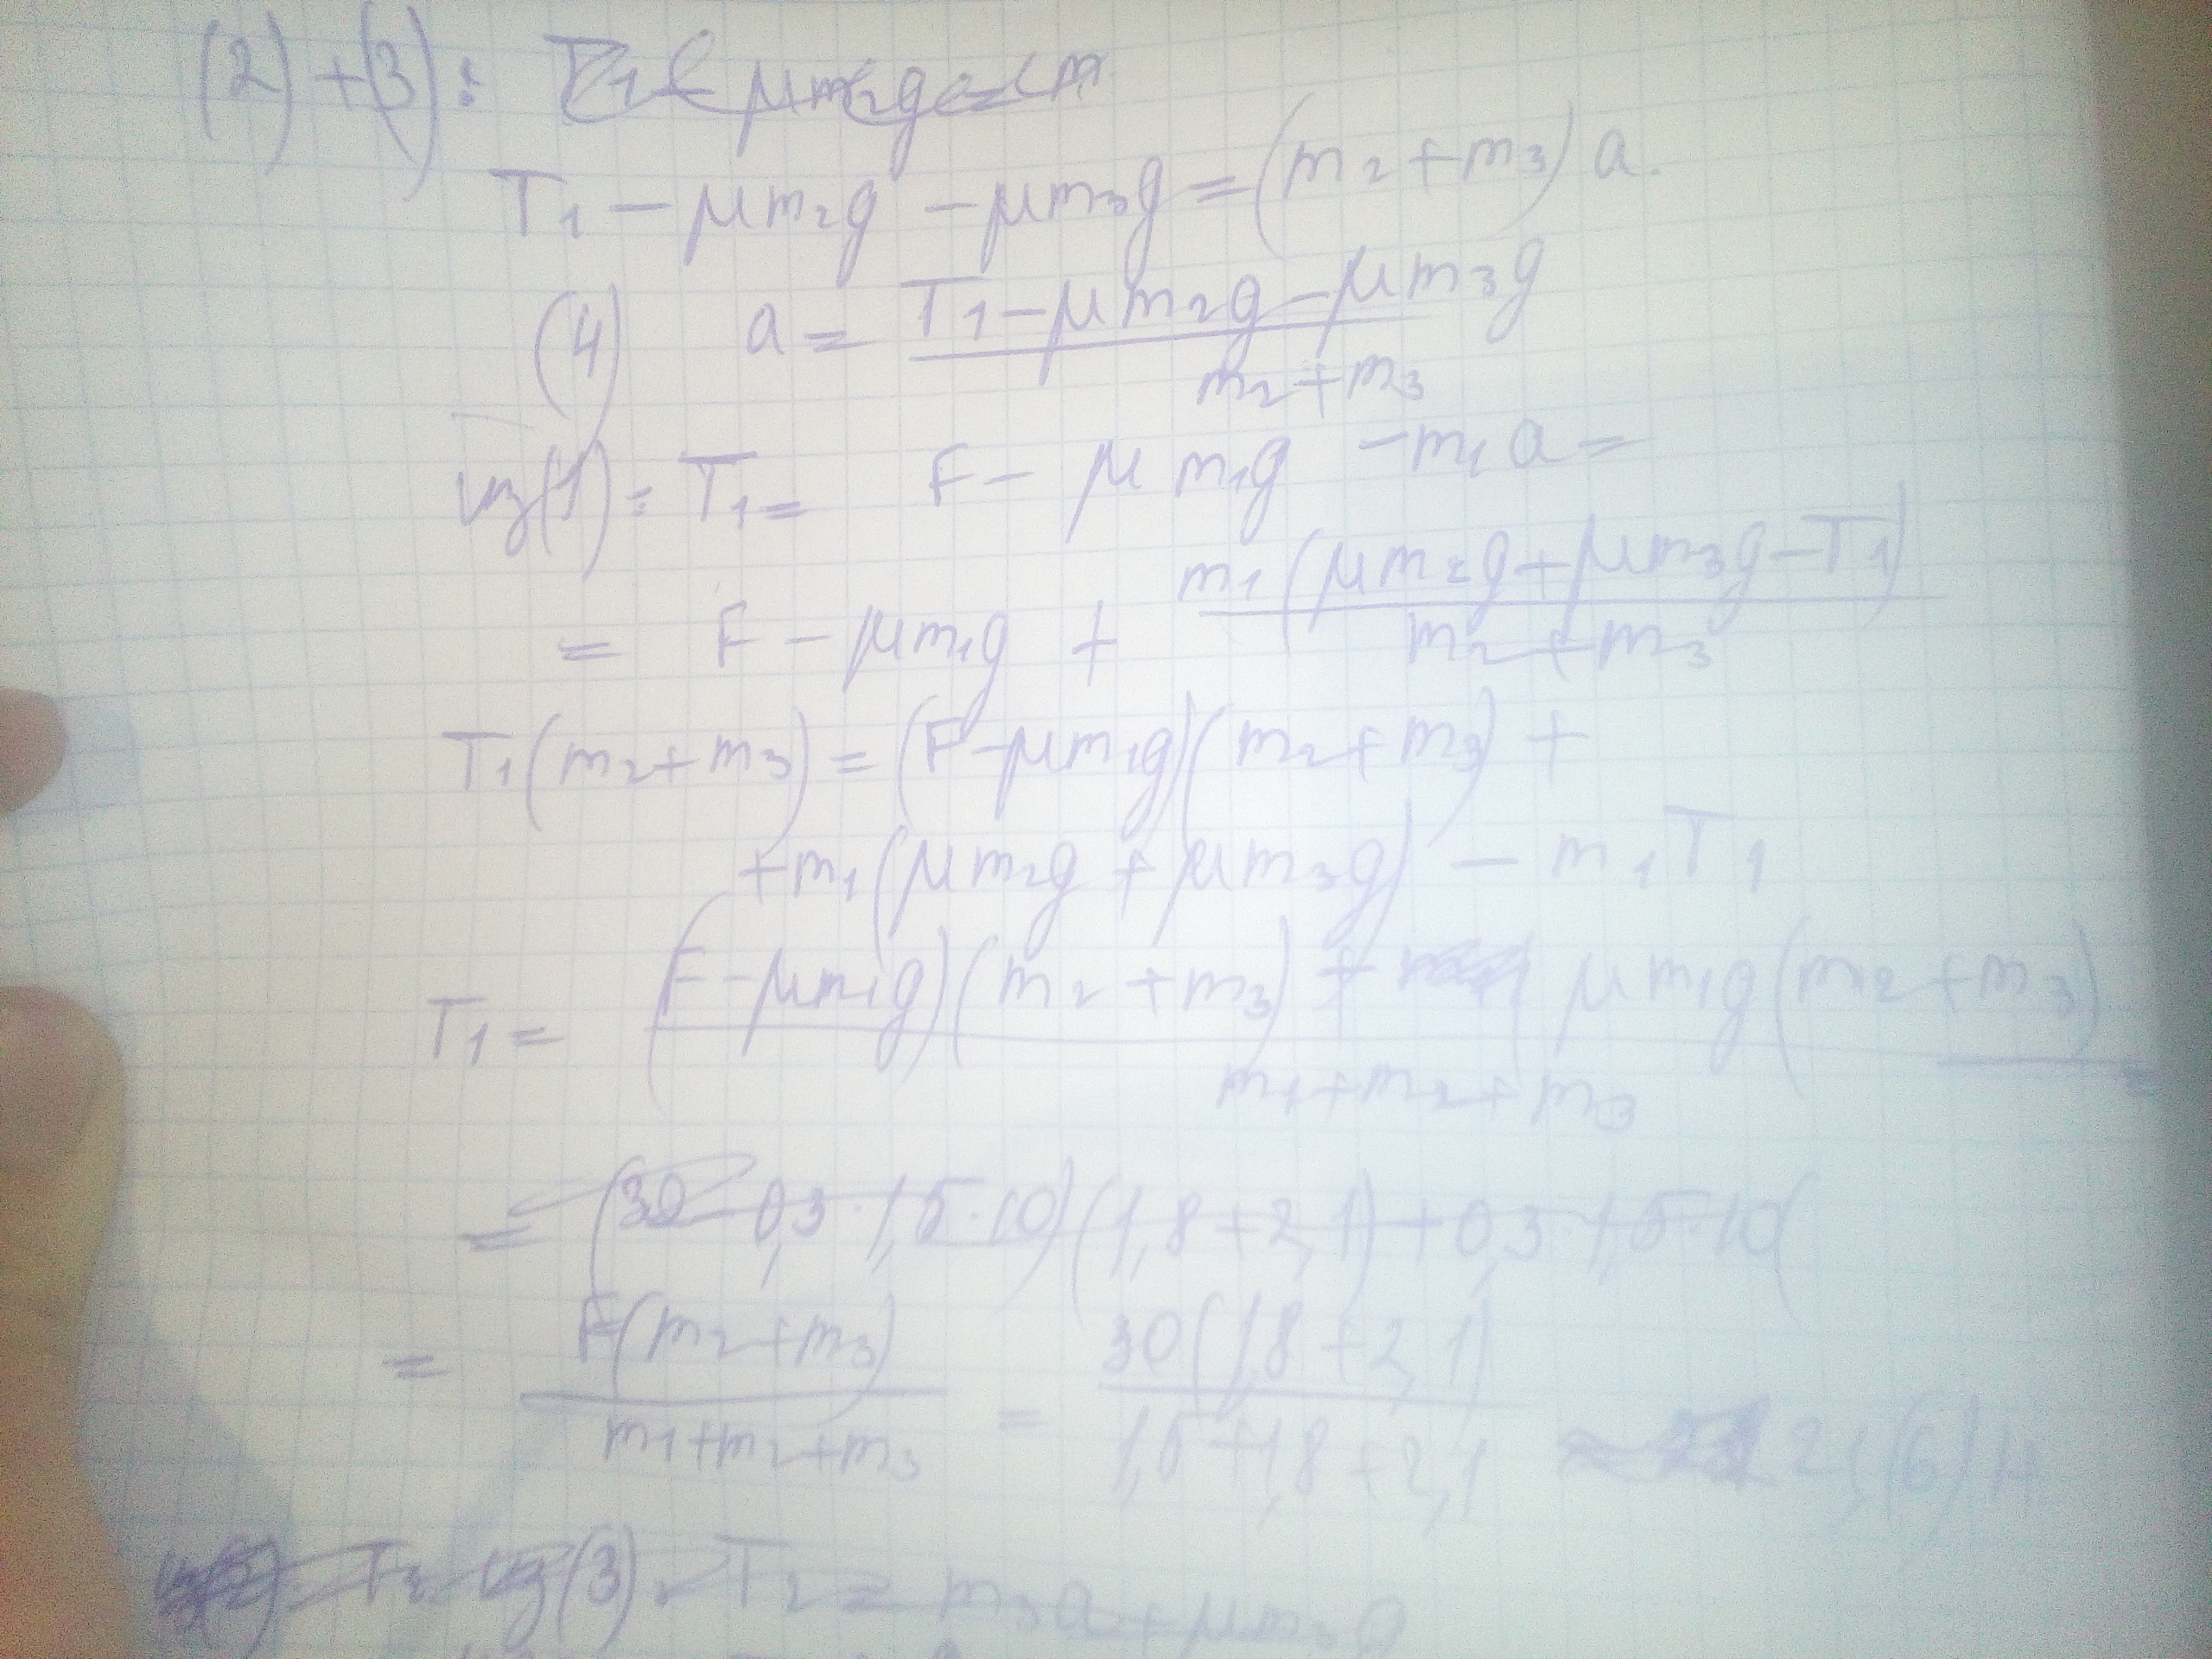 (2)+(3):
T₁ − μm₂g − μm₃g = (m₂+m₃) a.
(4) a = (T₁ − μm₂g − μm₃g) / (m₂+m₃)
из(1): T₁ = F − μm₁g − m₁a =
= F − μm₁g + m₁(μm₂g + μm₃g − T₁) / (m₂+m₃)
T₁(m₂+m₃) = (F − μm₁g)(m₂+m₃) +
+m₁(μm₂g + μm₃g) − m₁T₁
T₁ = ((F − μm₁g)(m₂+m₃) + μm₁g(m₂+m₃)) / (m₁+m₂+m₃) =
= (30 − 0,3·1,5·10)(1,8+2,1)+0,3·1,5·10(
= F(m₂+m₃) / (m₁+m₂+m₃) = 30(1,8+2,1) / (1,5+1,8+2,1) ≈ 21,(6) Н.
из(3): T₂ = m₃a + μm₃g